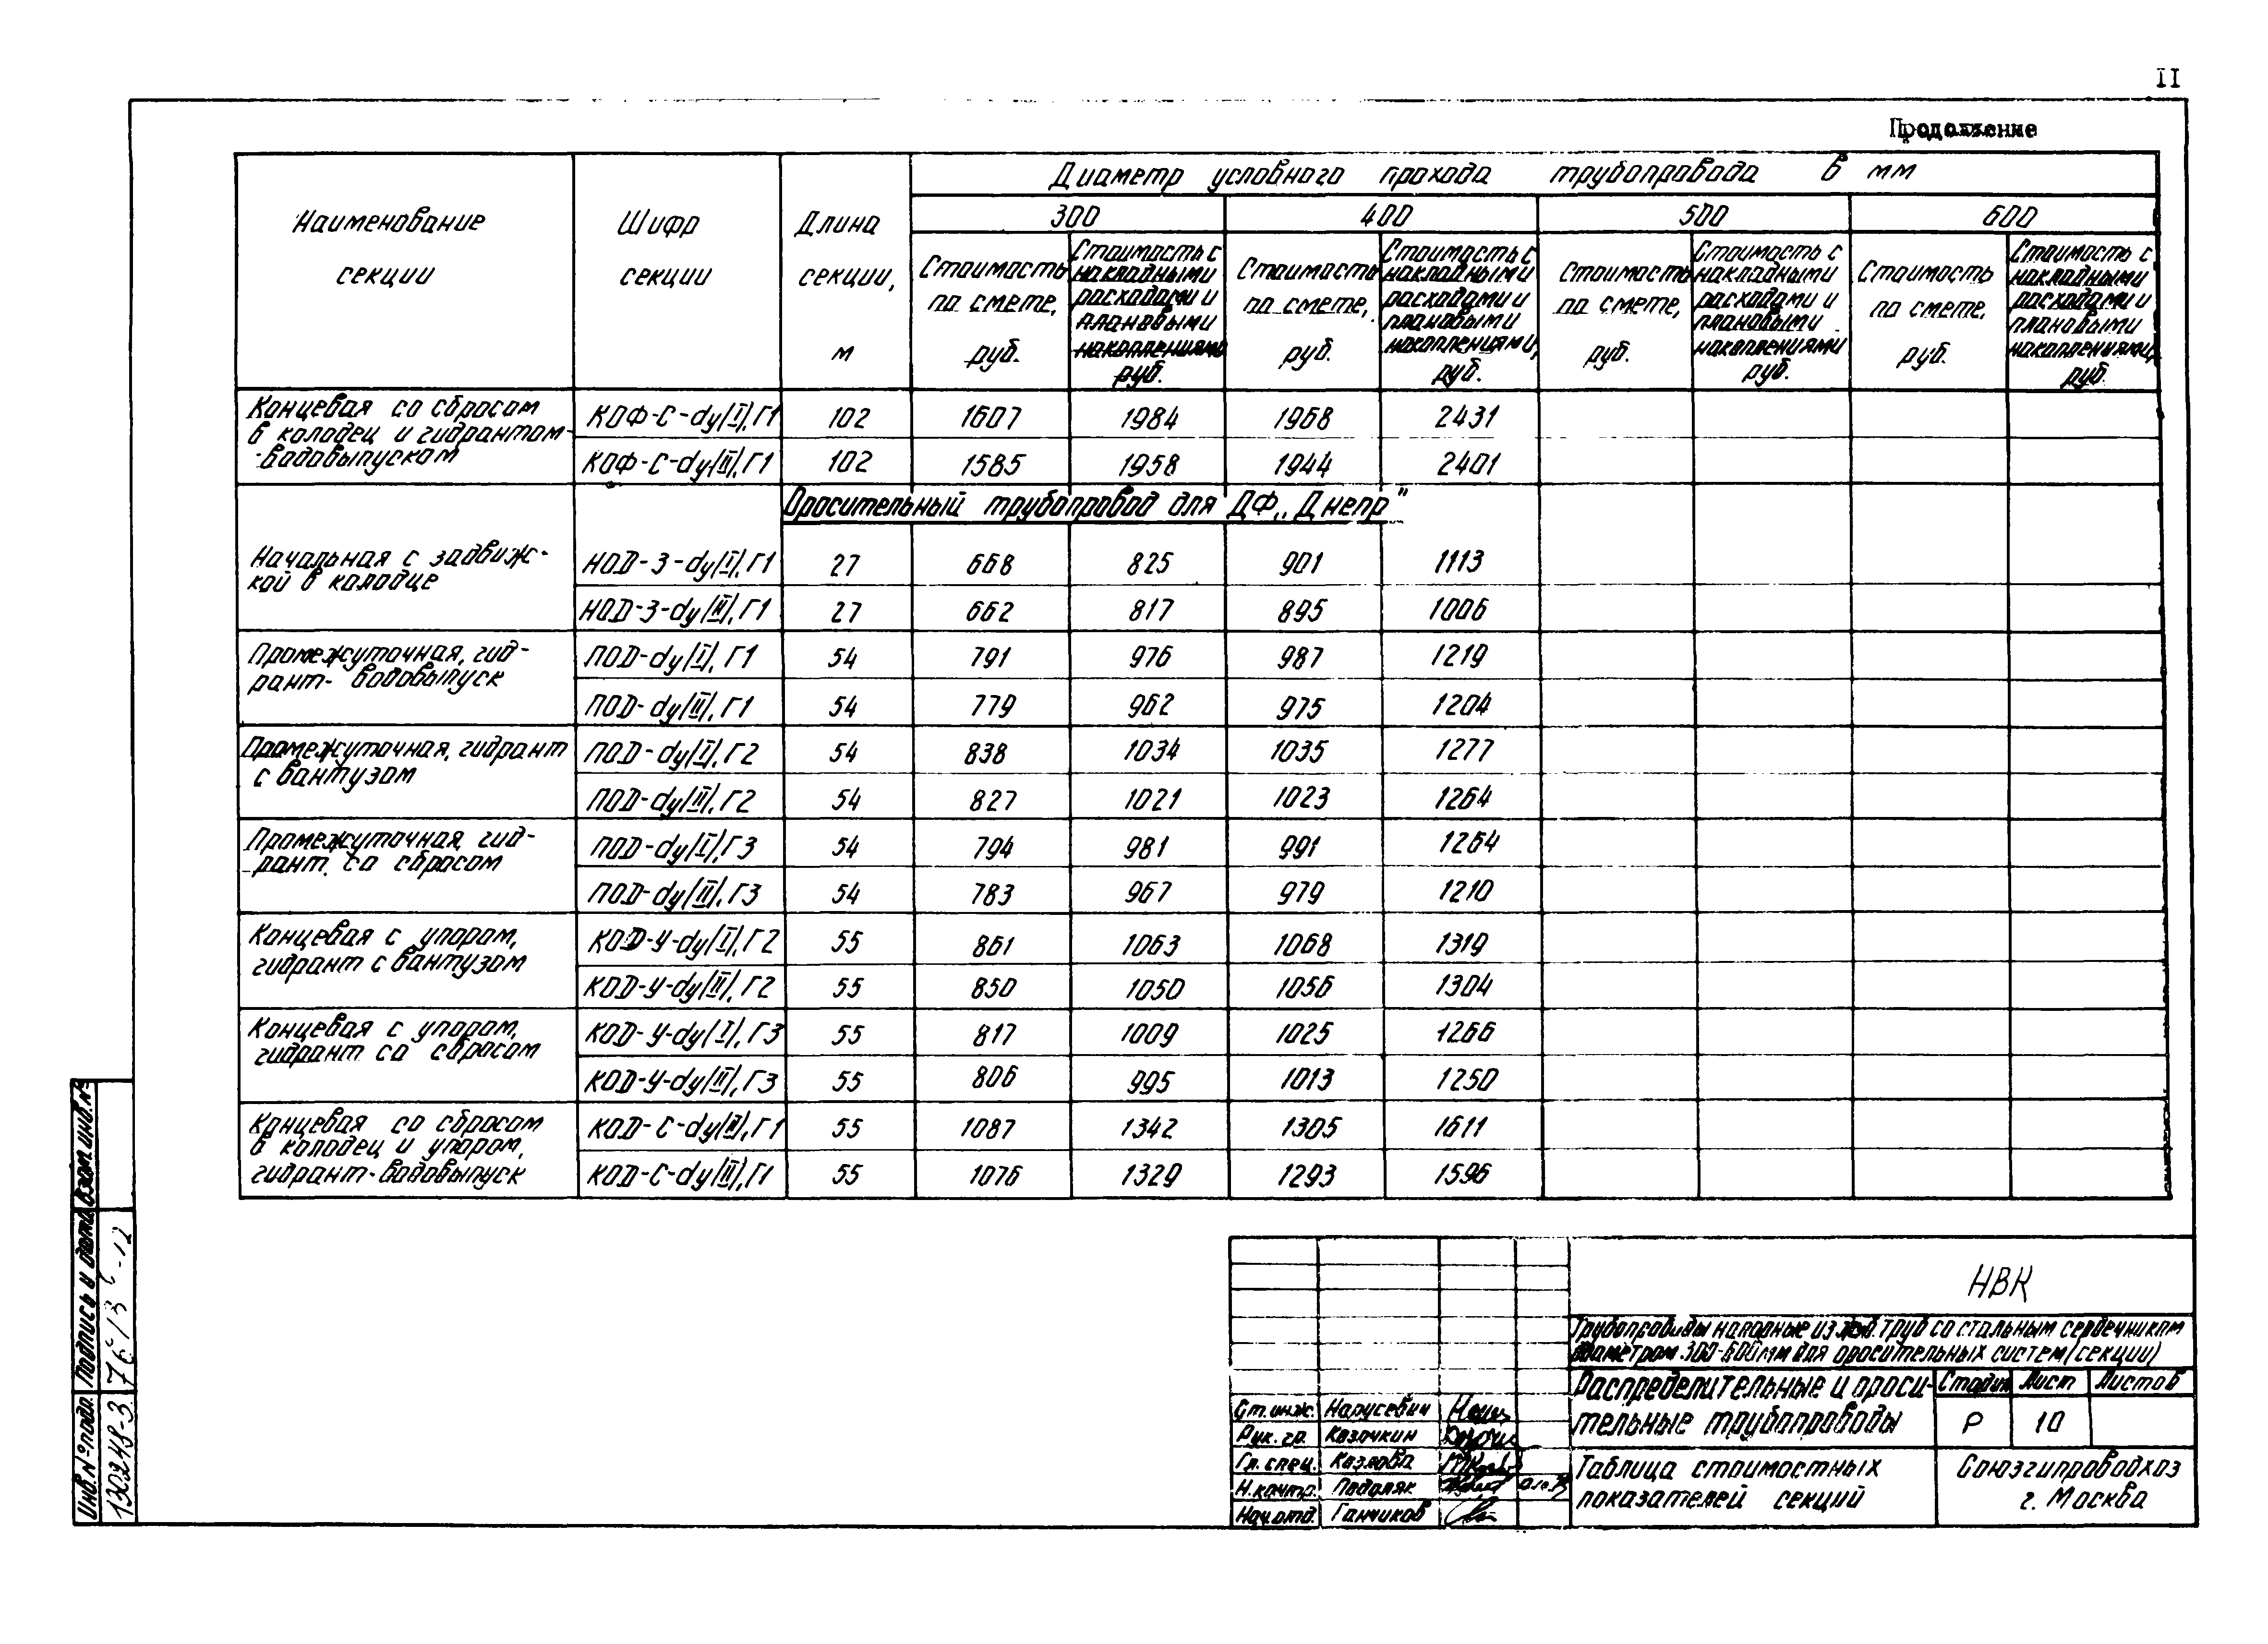 II
Продолжение
Наименование секции
Шифр секции
Длина секции, м
Диаметр условного прохода трубопровода в мм
300 400 500 600
Стоимость по смете, руб.
Стоимость с накладными расходами и плановыми накоплениями руб.
Стоимость по смете, руб.
Стоимость с накладными расходами и плановыми накоплениями, руб.
Стоимость по смете, руб.
Стоимость с накладными расходами и плановыми накоплениями руб.
Стоимость по смете, руб.
Стоимость с накладными расходами и плановыми накоплениями, руб.
Концевая со сбросом
в колодец и гидрантом-
-водовыпуском
КОФ-С-dу(I),Г1 102 1607 1984 1968 2431
КОФ-С-dу(II),Г1 102 1585 1958 1944 2401
Оросительный трубопровод для ДФ „Днепр"
Начальная с задвиж-
кой в колодце
НОД-З-dу(I),Г1 27 668 825 901 1113
НОД-З-dу(II),Г1 27 662 817 895 1006
Промежуточная, гид-
рант- водовыпуск
ПОД-dу(I),Г1 54 791 976 987 1219
ПОД-dу(II),Г1 54 779 962 975 1204
Промежуточная, гидрант
с вантузом
ПОД-dу(I),Г2 54 838 1034 1035 1277
ПОД-dу(II),Г2 54 827 1021 1023 1264
Промежуточная, гид-
рант со сбросом
ПОД-dу(I),Г3 54 794 981 991 1264
ПОД-dу(II),Г3 54 783 967 979 1210
Концевая с упором,
гидрант с вантузом
КОД-У-dу(I),Г2 55 861 1063 1068 1319
КОД-У-dу(II),Г2 55 850 1050 1056 1304
Концевая с упором,
гидрант со сбросом
КОД-У-dу(I),Г3 55 817 1009 1025 1266
КОД-У-dу(II),Г3 55 806 995 1013 1250
Концевая со сбросом
в колодец и упором,
гидрант-водовыпуск
КОД-С-dу(I),Г1 55 1087 1342 1305 1611
КОД-С-dу(II),Г1 55 1076 1329 1293 1596
НВК
Трубопроводы напорные из жеб. труб со стальным сердечником
диаметром 300-600мм для оросительных систем(секции)
Распределительные и ороси-
тельные трубопроводы
Стадия Лист Листов
Р 10
Таблица стоимостных
показателей секций
Союзгипроводхоз
г. Москва
Ст.инж. Нарусевич
Рук. гр. Казачкин
Гл. спец. Козлова
Н.контр. Подоляк
Нач.отд. Ганчиков
Инв.№подл. Подпись и дата Взам.инв.№
130248-3